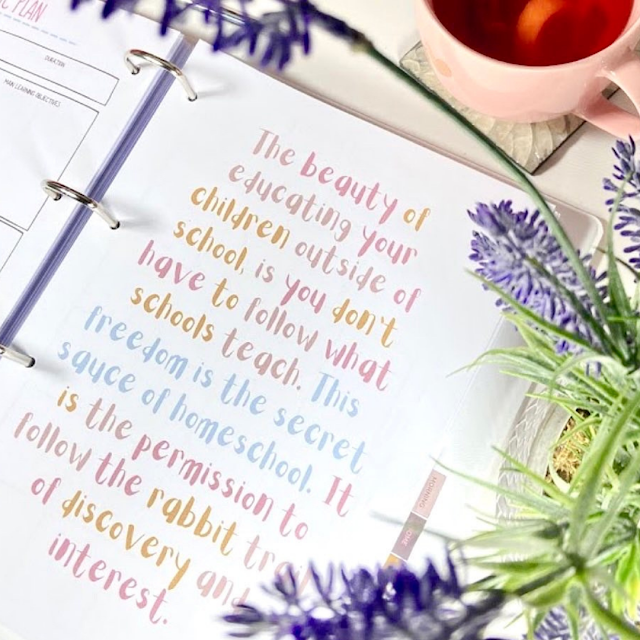 IC PLAN
DURATION
MAIN LEARNING OBJECTIVES
The beauty of
educating your
children outside of
school, is you don't
have to follow what
schools teach. This
freedom is the secret
sauce of homeschool. It
is the permission to
follow the rabbit
of discovery and
interest.